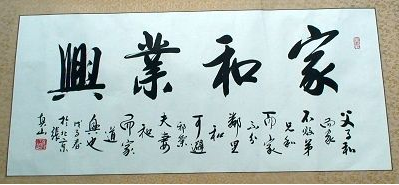 家和業興
父子和
而家
不敗弟
兄和
而家
不分
鄰里
和
可避
夫妻
和
而家
道
興也
戊子春
於北京
真山